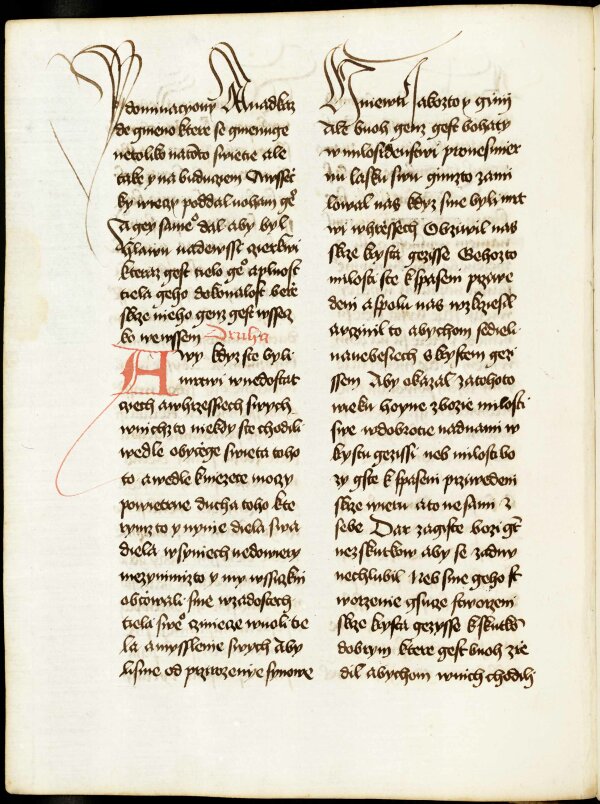 dominacyony A nadkaz
de gmeno ktere se gmenuge
netoliko natomto swietie ale
take y na buduczem A wssec
ky wieczy poddal noham ge°
A gey same° dal aby byl
hlawu nadewssi czierkwi
kteraz gest tielo ge° a plnost
tiela geho dokonalost bere
skrze nieho genz gest wssec
ko we wssem Druha
A wy kdyz ste byli
mrtwi w nedostat
cziech a w hrziessiech swych
w nichzto niekdy ste chodili
wedle obyczege swieta toho
to a wedle kniezete moczy
powietrne ducha toho kte
rymzto y nynie diela swa
diela w syniech nedowiery
mezy nimizto y my wssickni
obcowali sme w zadostech
tiela swe° cziniecze wuoli tie
la a myssleni swych A by
li sme od przirozenye synowe
hniewu Jakozto y gini
Ale buoh genz gest bohaty
w milosrdenstwi pro nesmier
nu lasku swu gimzto zami
lowal nas kdyz sme byli mrt
wi w hrziessech Obziwil nas
skrze krysta gezisse Gehozto
milosti ste k spaseni prziwe
deni a spolu nas wzkrziesil
a uczinil to abychom sedieli
na nebesiech s krystem gezi
ssem Aby okazal za tohoto
wieku hoyne zbozie milosti
swe w dobrotie nad nami w
krystu gezissi neb milosti bo
zy gste k spaseni prziwedeni
skrze wieru a to ne sami z
sebe Dar zagiste bozi gt
ne z skutkow aby se zadny
nechlubil Neb sme geho st
worzenie gsuce stworzeni
skrze krysta gezysse k skutko
dobrym ktere gest buoh zrie
dil abychom w nich chodili